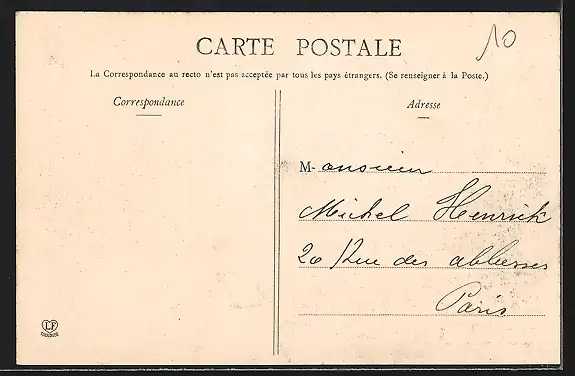 10
CARTE POSTALE
La Correspondance au recto n'est pas acceptée par tous les pays étrangers. (Se renseigner à la Poste.)
Correspondance
Adresse
M-onsieur
Michel Henrick
20 Rue des abbesses
Paris
LF